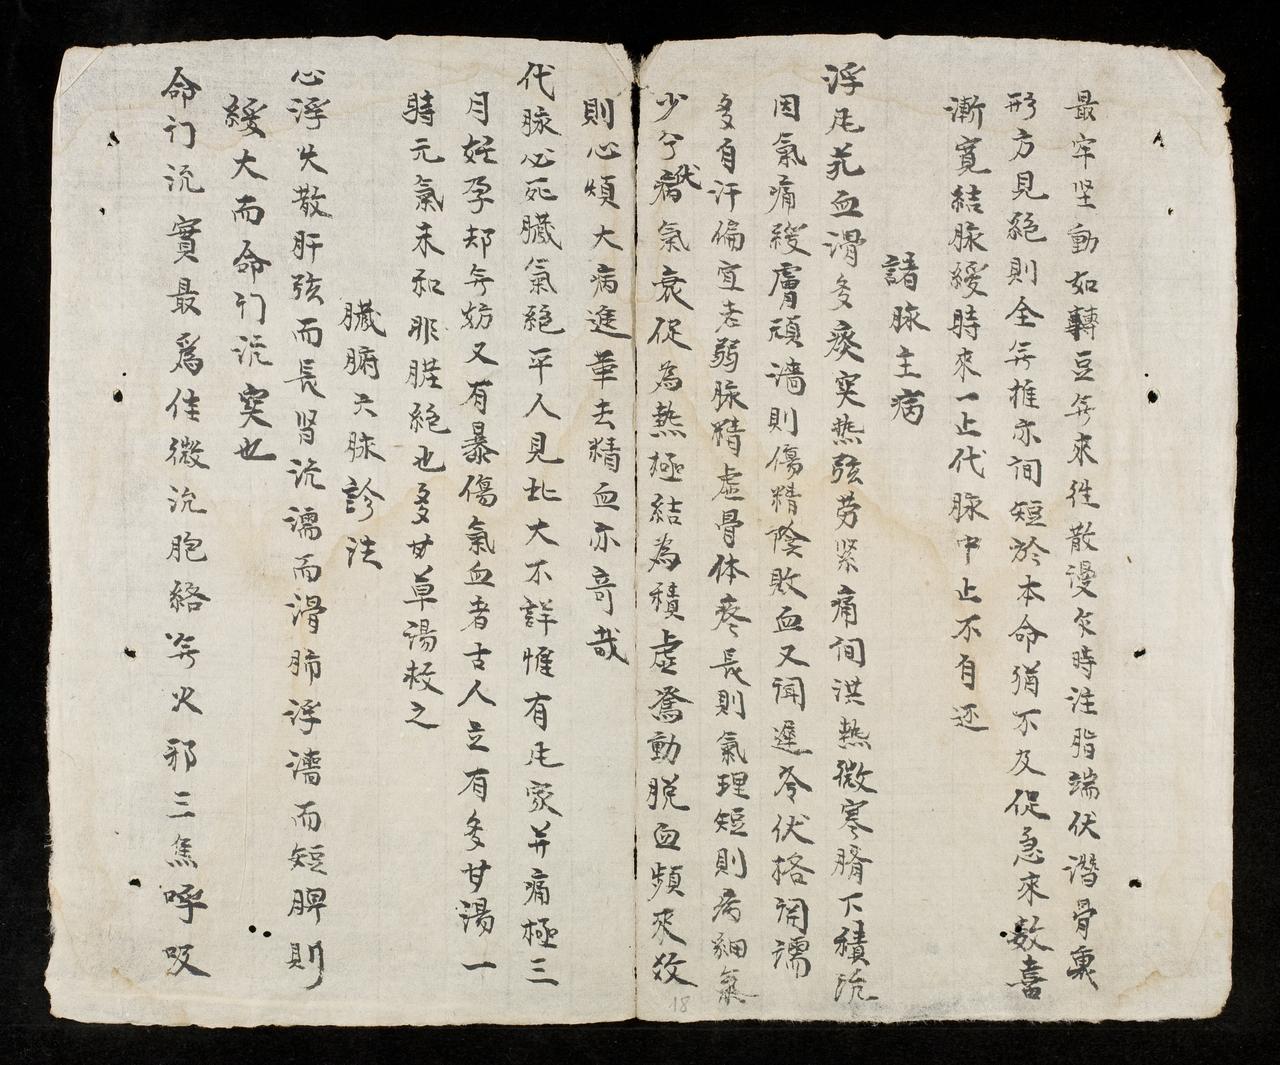 最牢坚動如轉豆無來徃散漫欠時注脂端伏潛骨裏
形方見絕則全無推亦间短於本命猶不及促急來数喜
漸寬結脉緩時來一止代脉中止不自还
諸脉主病
浮芤血滑多痰实热弦劳紧痛间洪热微寒脐下積沉
因氣痛緩膚頑濇則傷精陰敗血又闻遲冷伏格関濡
多自汗偏宜老弱脉精虚骨体疼長則氣理短則病細氣
少兮病氣衰促為熱極結為積虚驚動脱血頻來数
則心煩大病進革去精血亦奇哉
代脉必死臓氣絕平人見此大不詳惟有风家并痛極三
月妊孕却無妨又有暴傷氣血者古人立有多甘湯一
時元氣未和非臓絕也多甘草湯救之
臓腑六脉診法
心浮大散肝弦而長肾沉濡而滑肺浮濇而短脾則
緩大而命门沉实也
命门沉實最爲佳微沉胞絡無火邪三焦呼吸
18